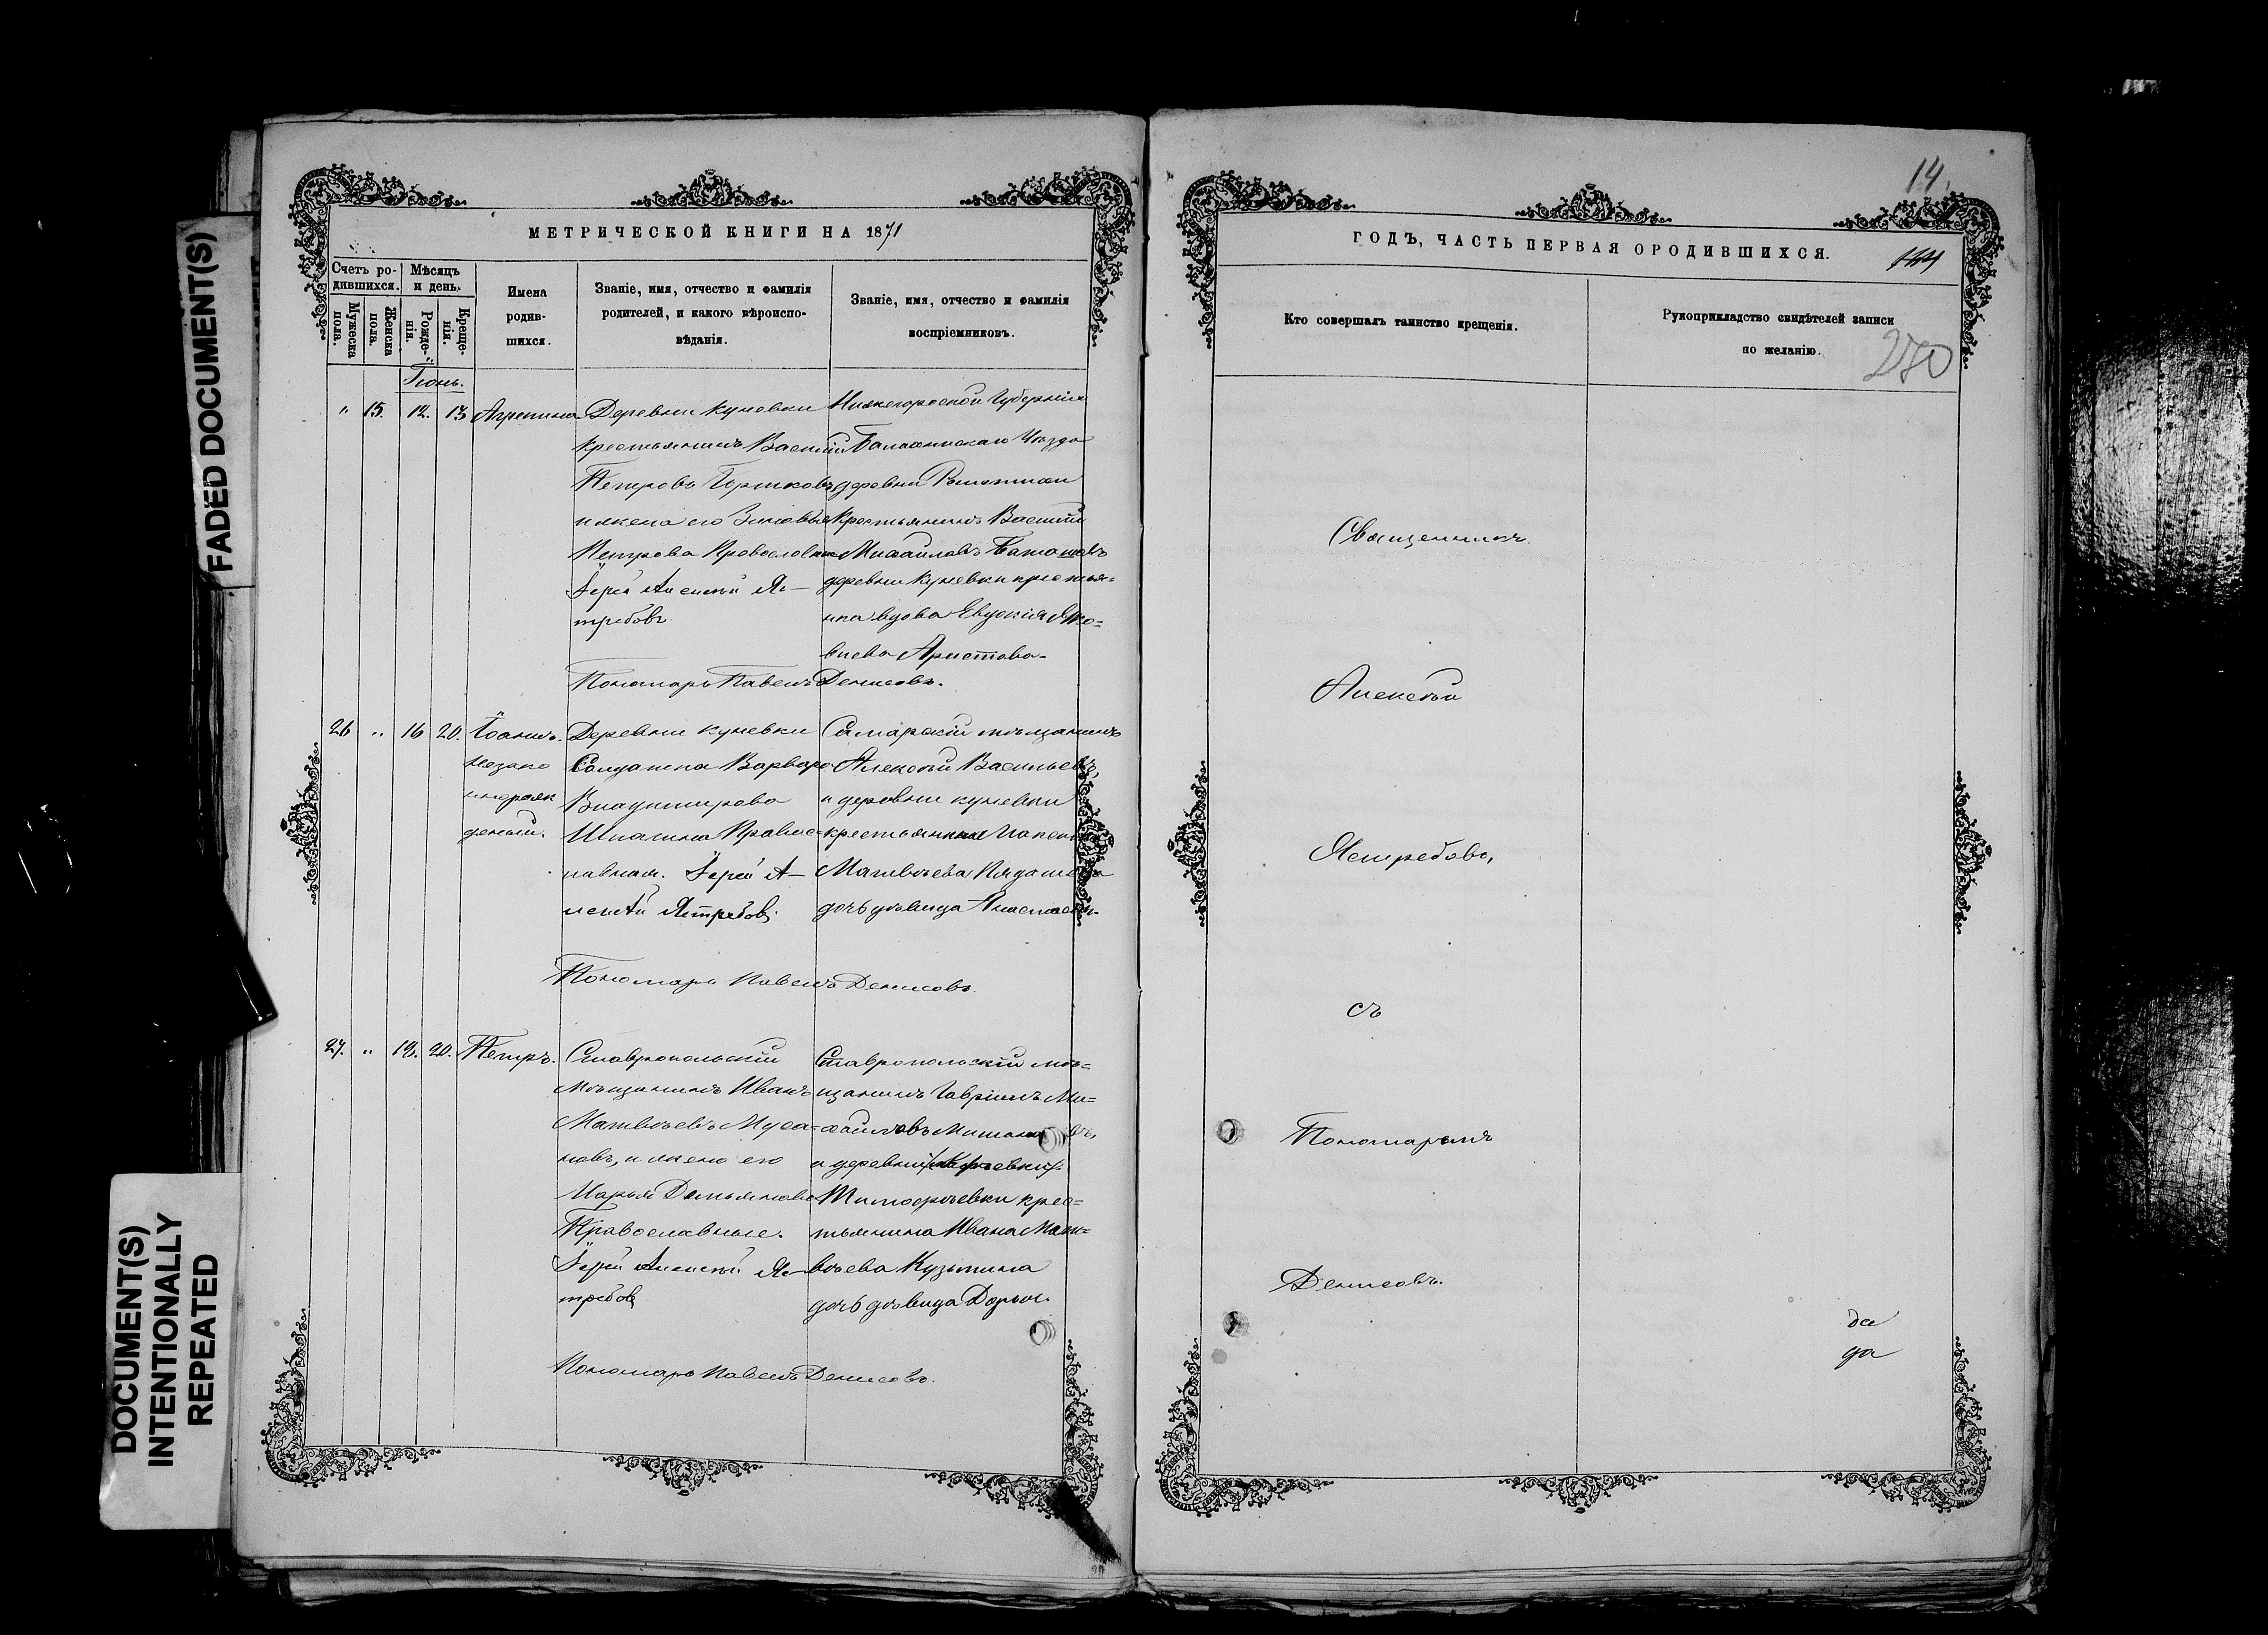 FADED DOCUMENT(S)
DOCUMENT(S)
INTENTIONALLY
REPEATED
МЕТРИЧЕСКОЙ КНИГИ НА 1871
Счетъ ро-
дившихся.
Мѣсяцъ
и день.
Мужеска
пола.
Женска
пола.
Рожде-
нія.
Креще-
нія.
Имена
родив-
шихся.
Званіе, имя, отчество и фамилія
родителей, и какого вѣроиспо-
вѣданія.
Званіе, имя, отчество и фамилія
воспріемниковъ.
Іюнь.
" 15. 12. 13 Агрепина
Деревни Куневки
крестьянинъ Василій
Петровъ
и жена его Зиновья
Петрова Православные
Іерей Алексѣй Яс-
требовъ
Нижегороской Губерніи
Балахнискаго Уѣзда
деревни
Крестьянинъ Василій
Михайловъ
деревни Куневки крестья=
нка вдова Евдокія Яко=
влева Аристова
Пономарь Павелъ Денисовъ.
26 " 16 20. Іоаннъ.
незако
норож
денный.
Деревни Куневки
Солдатка Варвара
Владимирова
Православ=
ная. Іерей А-
лексѣй Ястребовъ
Самарскій мѣщанинъ
Алексѣй Васильевъ,
и деревни Куневки
крестьянина
Матвѣева
дочь дѣвица
Пономарь Павелъ Денисовъ.
27. " 18. 20. Петръ.
Ставропольскій
Мѣщанинъ Иванъ
Матвѣевъ Муса=
новъ, и жена его
Марья Демьянова
Православные.
Іерей Алексѣй Яс-
требовъ
Ставропольскій мѣ=
щанинъ Гавріилъ Ми=
хайловъ
и деревни
Тимофѣевки крес=
тьянина Ивана Мат=
вѣева Кузьмина
дочь дѣвица Дарья.
Пономарь Павелъ Денисовъ.
14
ГОДЪ, ЧАСТЬ ПЕРВАЯ О РОДИВШИХСЯ.
Кто совершалъ таинство крещенія.
Рукоприкладство свидѣтелей записи
по желанію.
280
Священникъ
Алексѣй
Ястребовъ,
съ
Пономаремъ
Денисовъ.
да
да